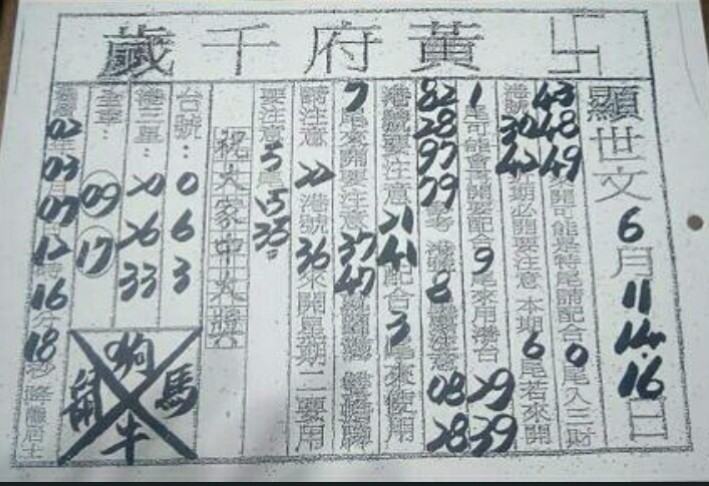 黃府千歲
顯世文6月11 14.16日
43 48 49開可能是特尾請配合0尾入三財
港號30 42本期必開要注意 本期6尾若來開
1尾可能會再開要配合9尾來用港台29 39
82 28 97 79參考 港號8尾請注意08 28
港號要注意21 41配合3尾來使用
7尾來開要注意37 47
請注意22港號36來開星期二要用
要注意5尾15 35
祝大家中大獎
台號：0 6 3
港二星：20 26 33
全車：09 17
02年03月07日12時16分18秒 降龍居士
狗
鼠 馬
牛